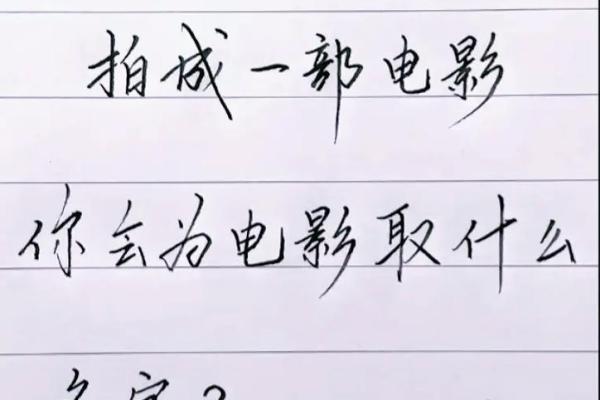 拍成一部电影
你会为电影取什么
名字?